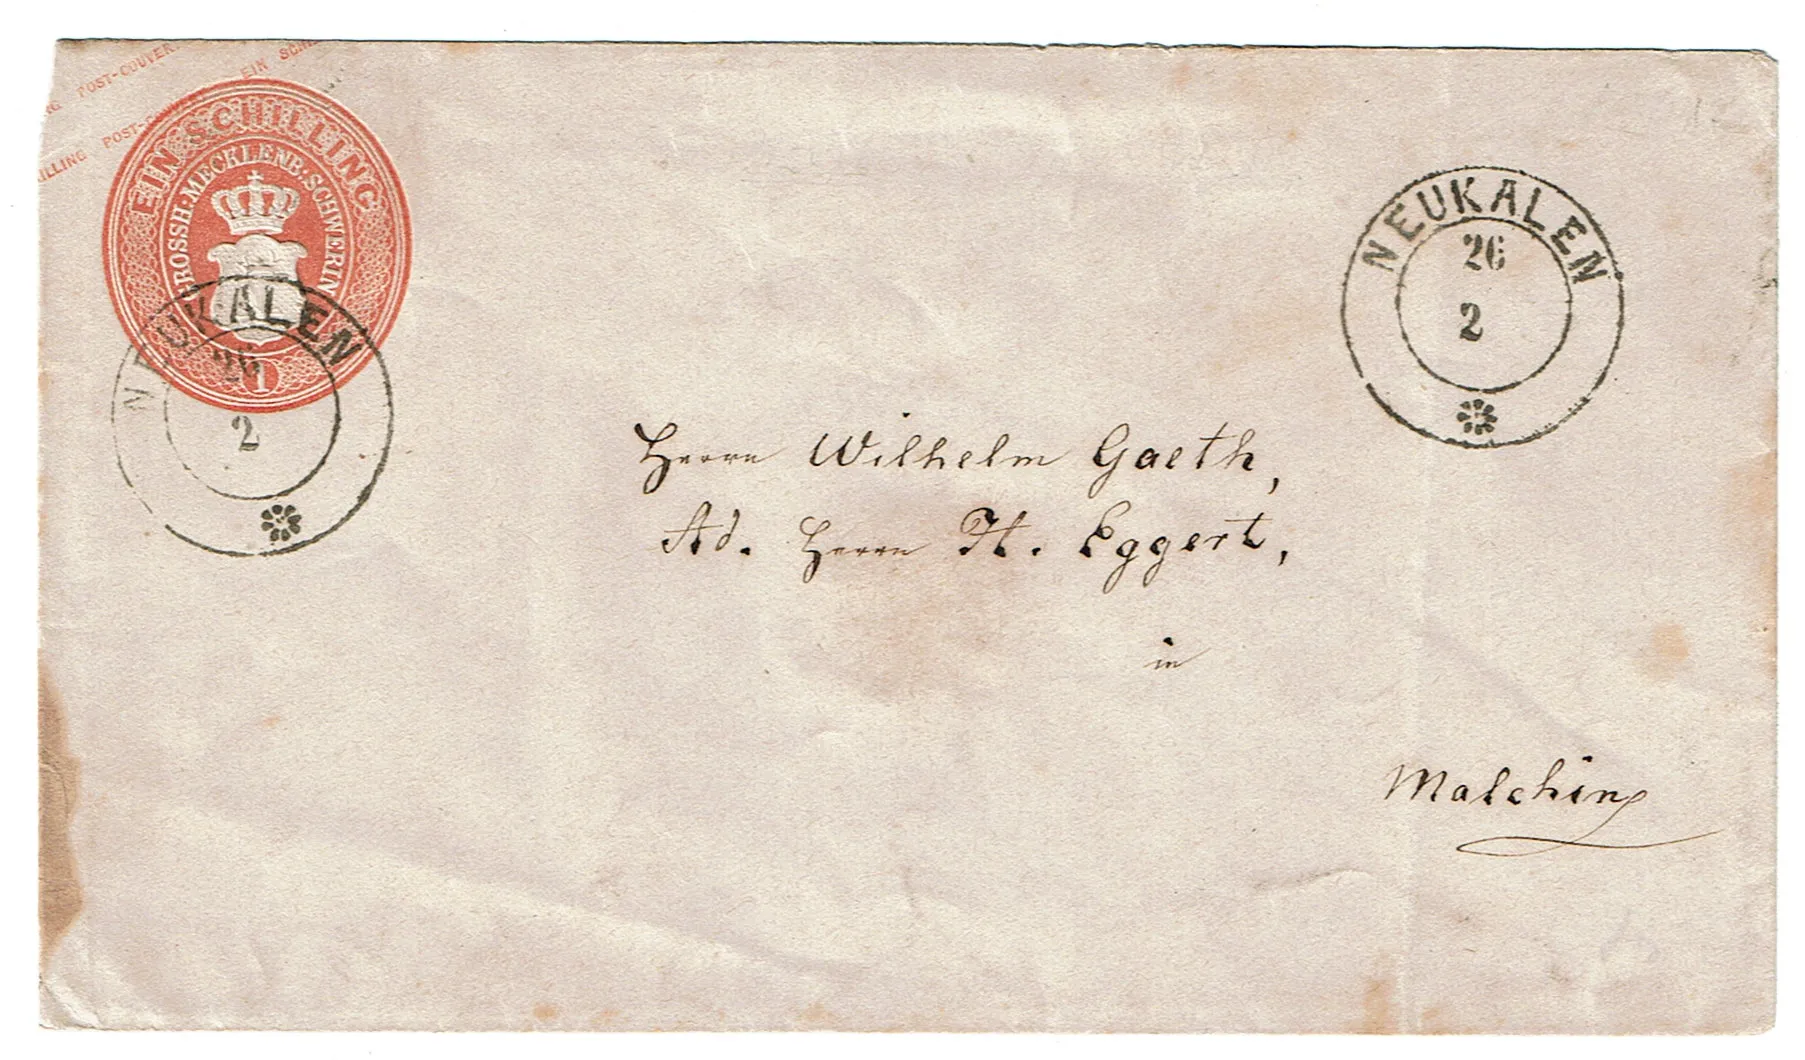 RG POST-COUVERT
EIN SCHI
ILLING POST-COUVERT
EIN SCHILLING
GROSSH. MECKLENB. SCHWERIN
1
NEUKALEN
26
2
NEUKALEN
26
2
Herrn Wilhelm Gaeth,
Ad. Herrn H. Eggert,
in
Malchin